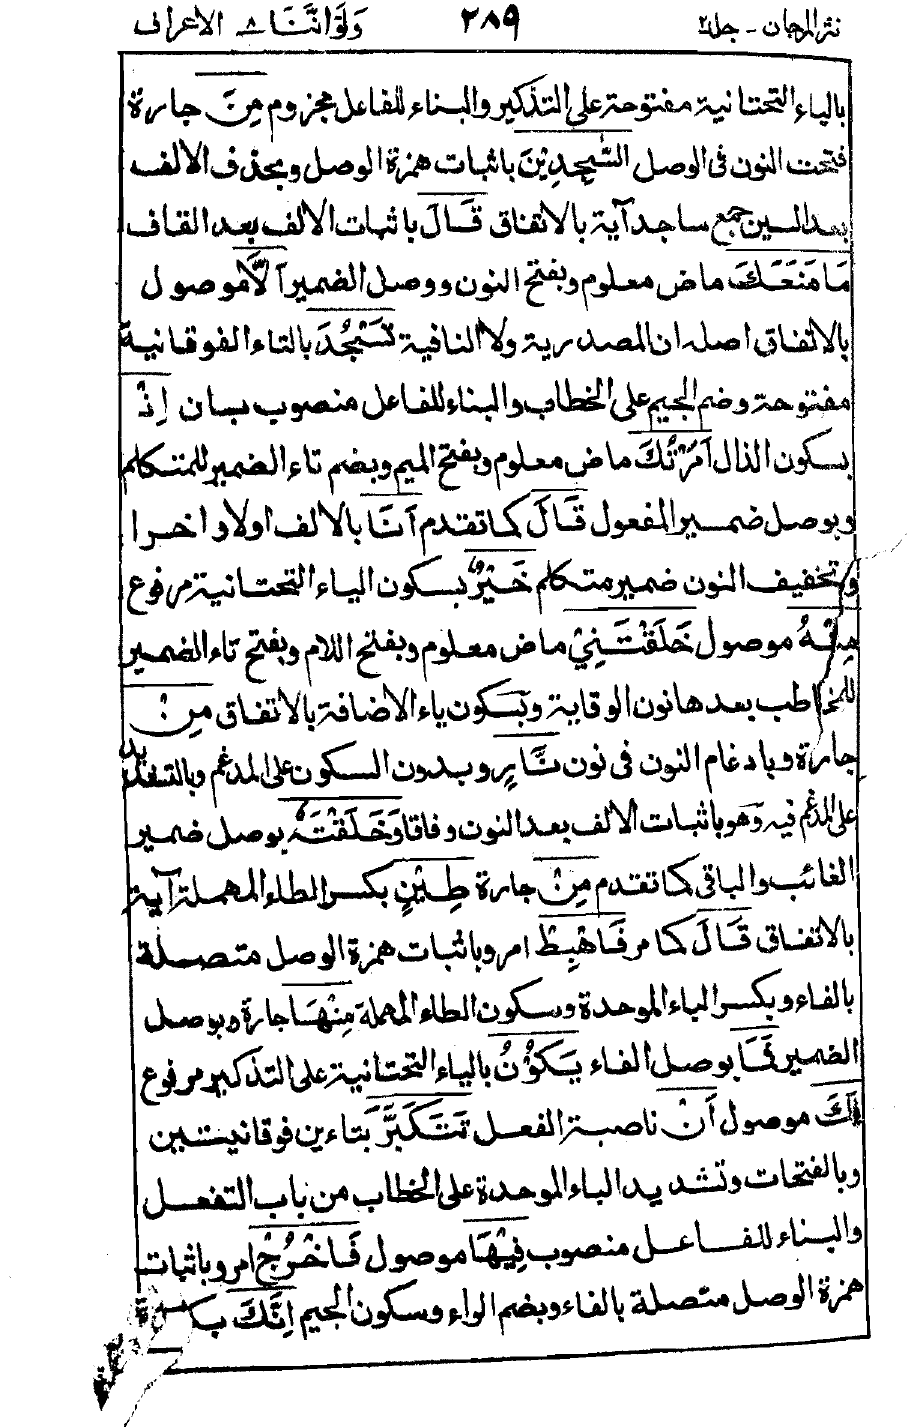 نثر المرجان - جلد ٢ ٢٨٩ ولواننا ٨ الاعراف
بالياء التحتانية مفتوحة على التذكير والبناء للفاعل مجزوم مِنَ جارة
فتحت النون فى الوصل السّٰجِدِيْنَ باثبات همزة الوصل وبحذف الالف
بعد السين جمع ساجد آية بالاتفاق قَالَ باثبات الالف بعد القاف
مَا مَنَعَكَ ماض معلوم وبفتح النون ووصل الضمير اَلَّا موصول
بالاتفاق اصله ان المصدرية ولا النافية تَسْجُدَ بالتاء الفوقانية
مفتوحة وضم الجيم على الخطاب والبناء للفاعل منصوب بسان اِذْ
بسكون الذال اَمَرْتُكَ ماض معلوم وبفتح الميم وبضم تاء الضمير للمتكلم
وبوصل ضمير المفعول قَالَ كما تقدم اَنَا بالالف اولا واخرا
وتخفيف النون ضمير متكلم خَيْرٌ بسكون الياء التحتانية مرفوع
مِنْهُ موصول خَلَقْتَنِيْ ماض معلوم وبفتح اللام وبفتح تاء الضمير
للمخاطب بعدها نون الوقاية وبسكون ياء الاضافة بالاتفاق مِنْ
جارة وبادغام النون فى نون نَّارٍ وبدون السكون على المدغم وبالتشديد
على المدغم فيه وهو باثبات الالف بعد النون وفاقا وَخَلَقْتَهٗ بوصل ضمير
الغائب والباقى كما تقدم مِنْ جارة طِيْنٍ بكسر الطاء المهملة آية
بالاتفاق قَالَ كما مر فَاهْبِطْ امر وباثبات همزة الوصل متصلة
بالفاء وبكسر الباء الموحدة وسكون الطاء المهملة مِنْهَا جارة وبوصل
الضمير فَمَا بوصل الفاء يَكُوْنُ بالياء التحتانية على التذكير مرفوع
لَكَ موصول اَنْ ناصبة الفعل تَتَكَبَّرَ بتاءين فوقانيتين
وبالفتحات وتشديد الباء الموحدة على الخطاب من باب التفعل
والبناء للفاعل منصوب فِيْهَا موصول فَاخْرُجْ امر وباثبات
همزة الوصل متصلة بالفاء وبضم الراء وسكون الجيم اِنَّكَ بكسرة